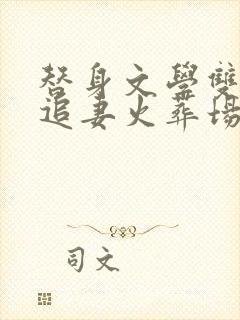 替身文學雙
追妻火葬場
司文